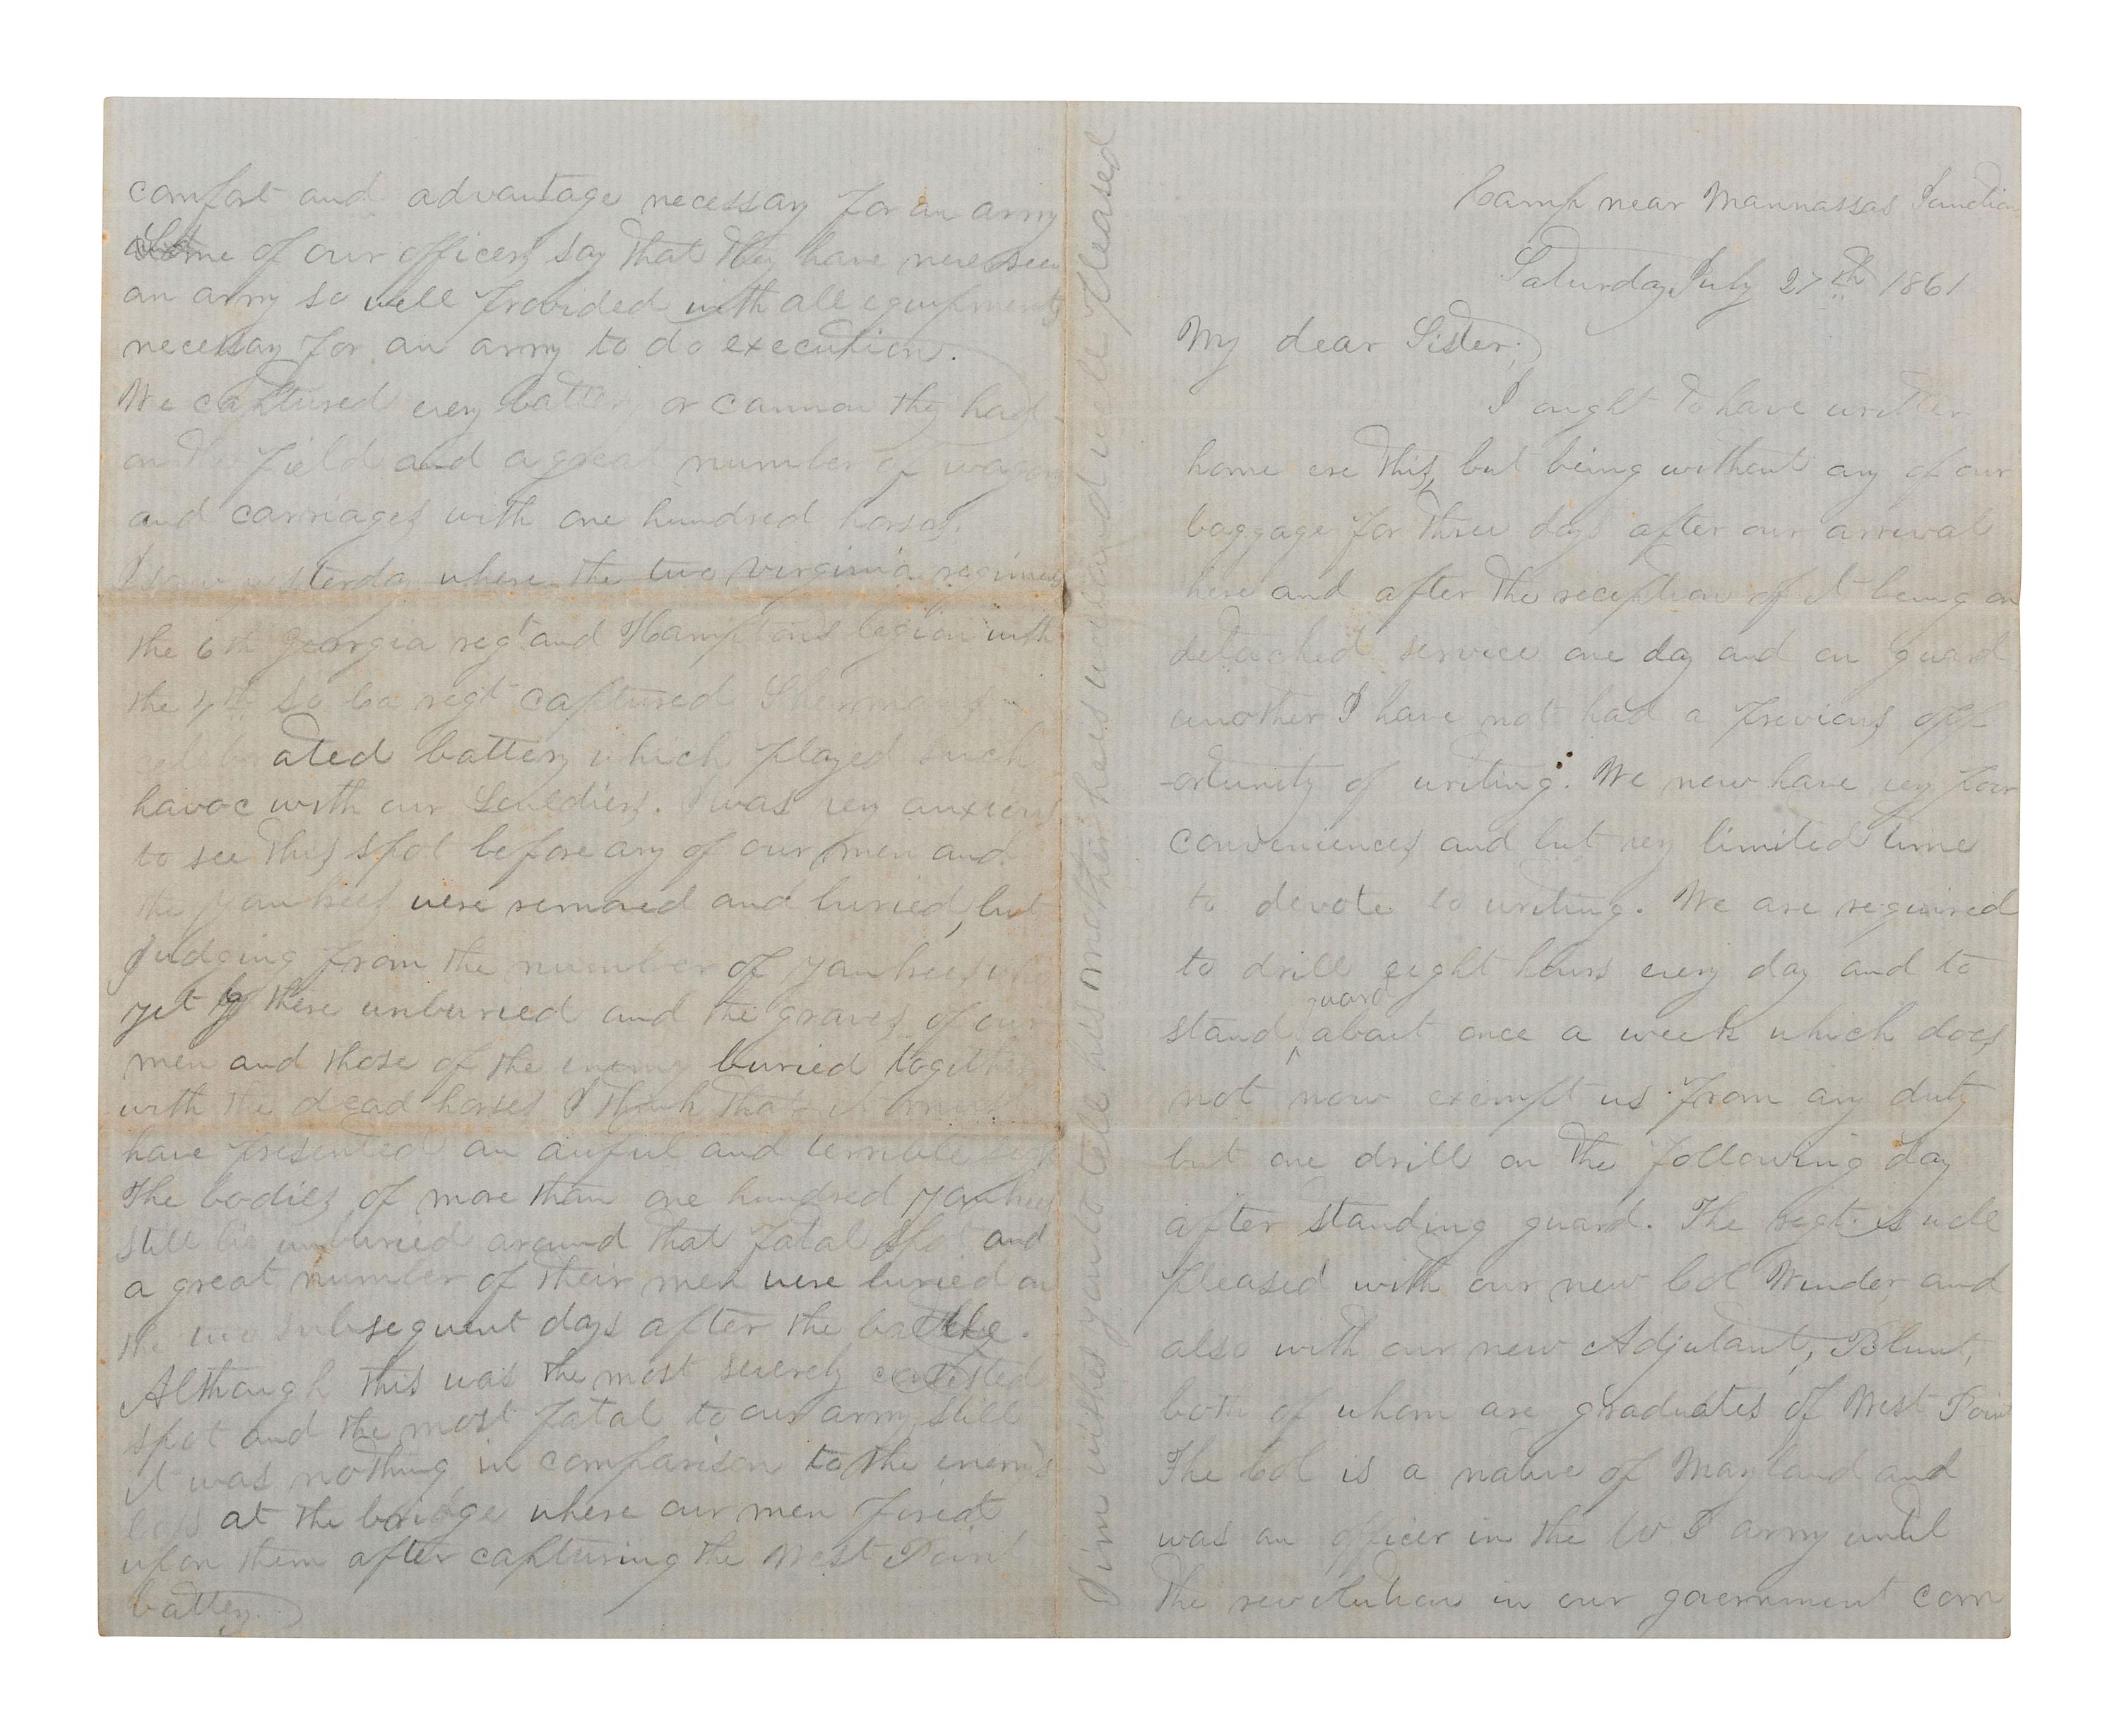 Camp near Mannassas Junction
Saturday July 27th 1861
My dear Sister;
I ought to have written
home ere this, but being without any of our
baggage for three days after our arrival
here and after the reception of it being on
detached service one day and on guard
another I have not had a previous opp
-ortunity of writing. We now have very poor
conveniences and but very limited time
to devote to writing. We are required
to drill eight hours every day and to
stand guard about once a week which does
not now exempt us from any duty
but one drill on the following day
after standing guard. The regt. is well
pleased with our new Col Winder and
also with our new Adjutant, Blunt,
both of whom are graduates of West Point
The Col is a native of Maryland and
was an officer in the U S army until
the revolution in our government com
comfort and advantage necessary for an army
Some of our officers say that they have never seen
an army so well provided with all equipments
necessary for an army to do execution.
We captured every battery or cannon they had
on the field and a great number of wagons
and carriages with one hundred horses.
I saw yesterday where the two Virginia regiments
the 6th Georgia regt and Hamptons legion with
the 4th So Ca regt captured Shermans
celebrated battery which played such
havoc with our Souldiers. I was very anxious
to see this spot before any of our men and
the yankees were removed and buried, but
judging from the number of yankees who
yet ly there unburied and the graves of our
men and those of the enemy buried together
with the dead horses I think that it must
have presented an awful and terrible sight
The bodies of more than one hundred yankees
still lie unburied around that fatal spot and
a great number of their men were buried on
the two subsequent days after the battle.
Although this was the most severely contested
spot and the most fatal to our army still
it was nothing in comparison to the enemys
loss at the bridge where our men fired
upon them after capturing the West Point
battery.
Jim wishes you to tell his mother he is well and well pleased